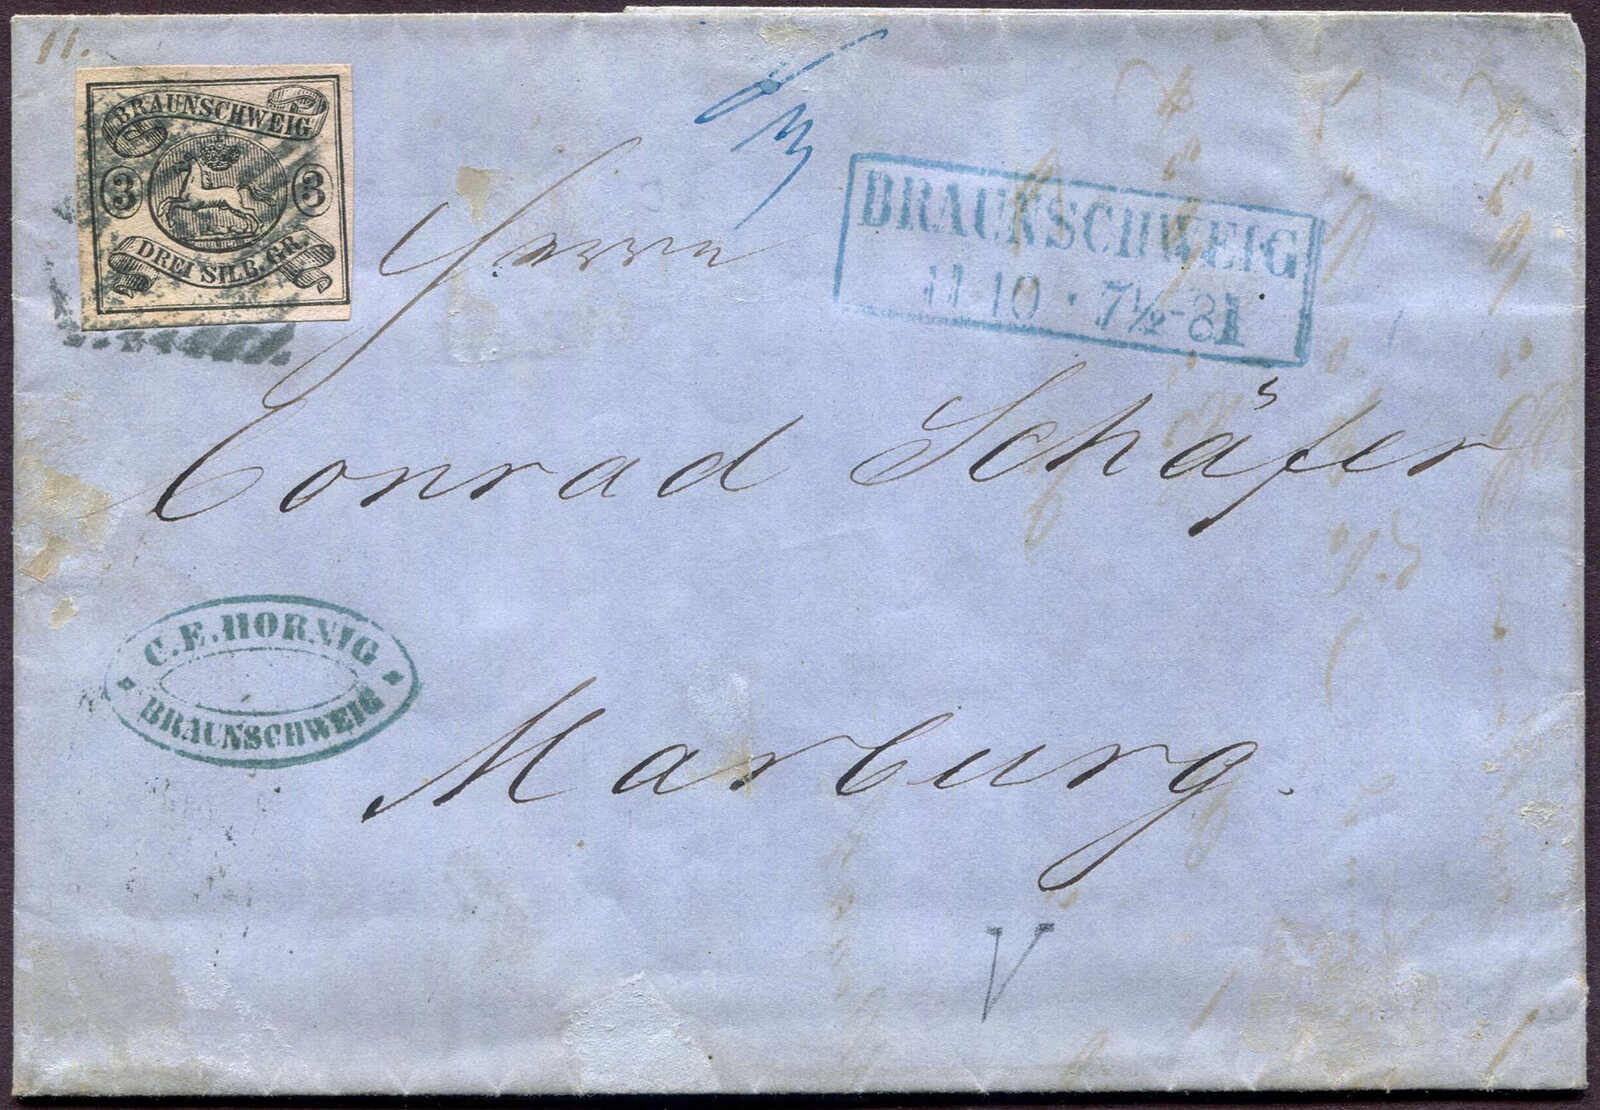 11.
BRAUNSCHWEIG
3 3
DREI SILB. GR.
BRAUNSCHWEIG
11 10 · 7½-8
Herrn
Conrad Schäfer
C. E. HORNIG
BRAUNSCHWEIG
Marburg.
V